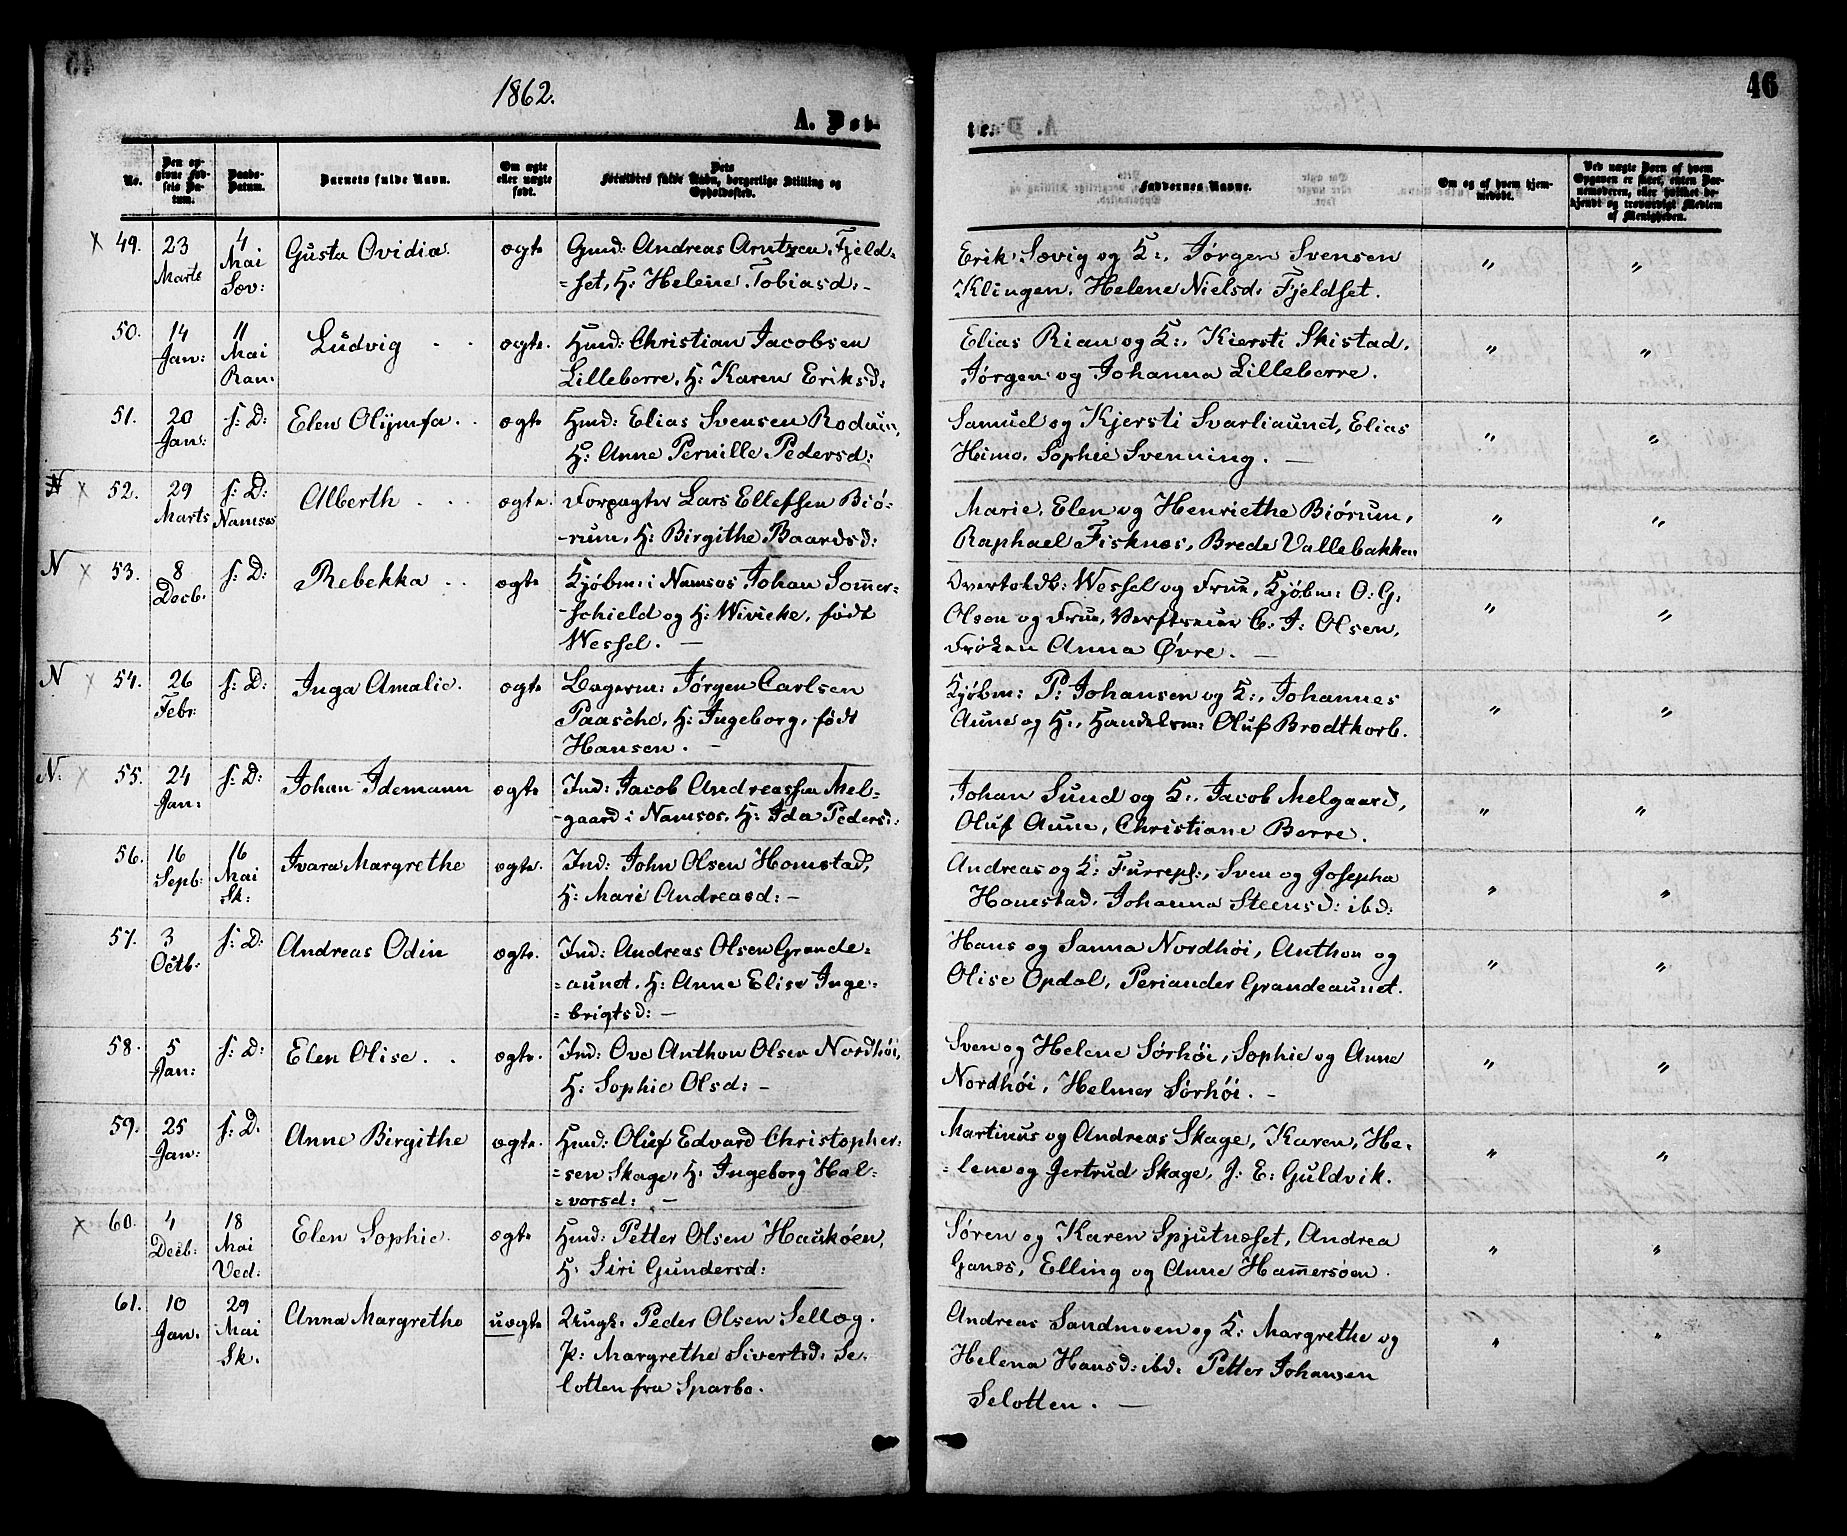 1862.
46
A. Døb-
te.
No.
Den op-
givne Fød-
sels Da-
tum.
Daabs-
Datum.
Barnets fulde Navn.
Om ægte
eller uægte
født.
Dets
Forældres fulde Navn, borgerlige Stilling og
Opholdssted.
Faddernes Navne.
Om og af hvem hjem-
medøbt.
Ved uægte Børn af hvem
Opgaven er skeet, enten Bar-
nemoderen, eller hvilket be-
kjendt og troværdigt Medlem
af Menigheden.
× 49. 23 Marts 4 Mai Sæv: Gusta Ovidia. ægte Gmd: Andreas Arntzen, Fjeld=
=set, H: Helene Tobiasd: –
Erik Sævig og K:, Jørgen Svensen
Klingen, Helene Nielsd: Fjeldset. " "
50. 14 Jan: 11 Mai Ran: Ludvig ægte. Hmd: Christian Jacobsen
Lilleberre, H: Karen Eriksd:
Elias Rian og K:, Kiersti Skistad,
Jørgen og Johanna Lilleberre. " "
51. 20 Jan: s: D: Elen Olijmfa ægte Hmd: Elias Svensen Rodum,
H: Anne Pernille Pedersd:
Samuel og Kjersti Svarliaunet, Elias
Himo, Sophie Svenning. – " "
N × 52. 29 Marts s: D: Namsos Alberth ægte. Forpagter Lars Ellefsen Biø-
-rum, H: Birgithe Baardsd:
Marie, Elen og Henriethe Biørum,
Raphael Fisknæs, Brede Vallebakken " "
N × 53. 8 Decb. s: D: Rebekka ægte Kjøbm: i Namsos Johan Sommer-
-schield og H: Wivicke, født
Wessel. –
Overtoldb: Wessel og Frue, Kjøbm: O. G.
Olsen og Frue, Værftseier C. J. Olsen,
Frøken Anna Øvre. – " "
N × 54. 26 Febr: s: D: Inga Amalie. ægte Bagerm: Jørgen Carlsen
Paasche, H: Ingeborg, født
Hansen. –
Kjøbm: P: Johansen og K:, Johannes
Aune og H:, Handelsm: Oluf Brodtkorb. " "
N: × 55. 24 Jan: s: D: Johan Idemann ægte Ind: Jacob Andreassen Mel=
-gaard i Namsos, H: Ida Pedersd:
Johan Sund og K:, Jacob Melgaard,
Oluf Aune, Christiane Berre. " "
56. 16 Sepb: 16 Mai Sk: Ivara Margrethe ægte. Ind: John Olsen Homstad,
H: Mari Andreasd: –
Andreas og K: , Sven og Josepha
Homstad, Johanna Steensd: ibd: " "
57. 3 Octb: s: D: Andreas Odin ægte. Ind: Andreas Olsen Grande=
=aunet, H: Anne Elise Inge=
=brigtsd: –
Hans og Sanna Nordhøi, Anthon og
Olise Opdal, Periander Grandeaunet. " "
58. 5 Jan: s: D: Elen Olise. ægte. Ind: Ove Anthon Olsen Nordhøi,
H: Sophie Olsd: –
Sven og Helene Sørhøi, Sophie og Anne
Nordhøi, Helmer Sørhøi. – " "
59. 25 Jan: s: D. Anne Birgithe ægte. Hmd: Oluf Edvard Christopher:
=sen Skage, H: Ingeborg Hal=
=vorsd: –
Martinus og Andreas Skage, Karen, He=
=lene og Jertrud Skage, J. E: Guldvik. " "
× 60. 4 Decb: 18 Mai Ved: Elen Sophie. ægte Hmd: Petter Olsen Haukøen,
H: Siri Gundersd:
Søren og Karen Spjutnæset, Andrea
Ganæs, Elling og Anne Hammersøen. " "
61. 10 Jan. 29 Mai Sk. Anna Margrethe uægte Ungk. Peder Olsen Selløg.
P: Margrethe Sivertsd: Se-
lotten fra Sparbo.
Andreas Sandmoen og K: Margrethe og
Helena Hansd: ibd: Petter Johansen
Selotten. – " "